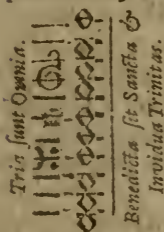 Tria sunt Omnia.
Benedicta sit Sancta &
Invidus Trinitas.